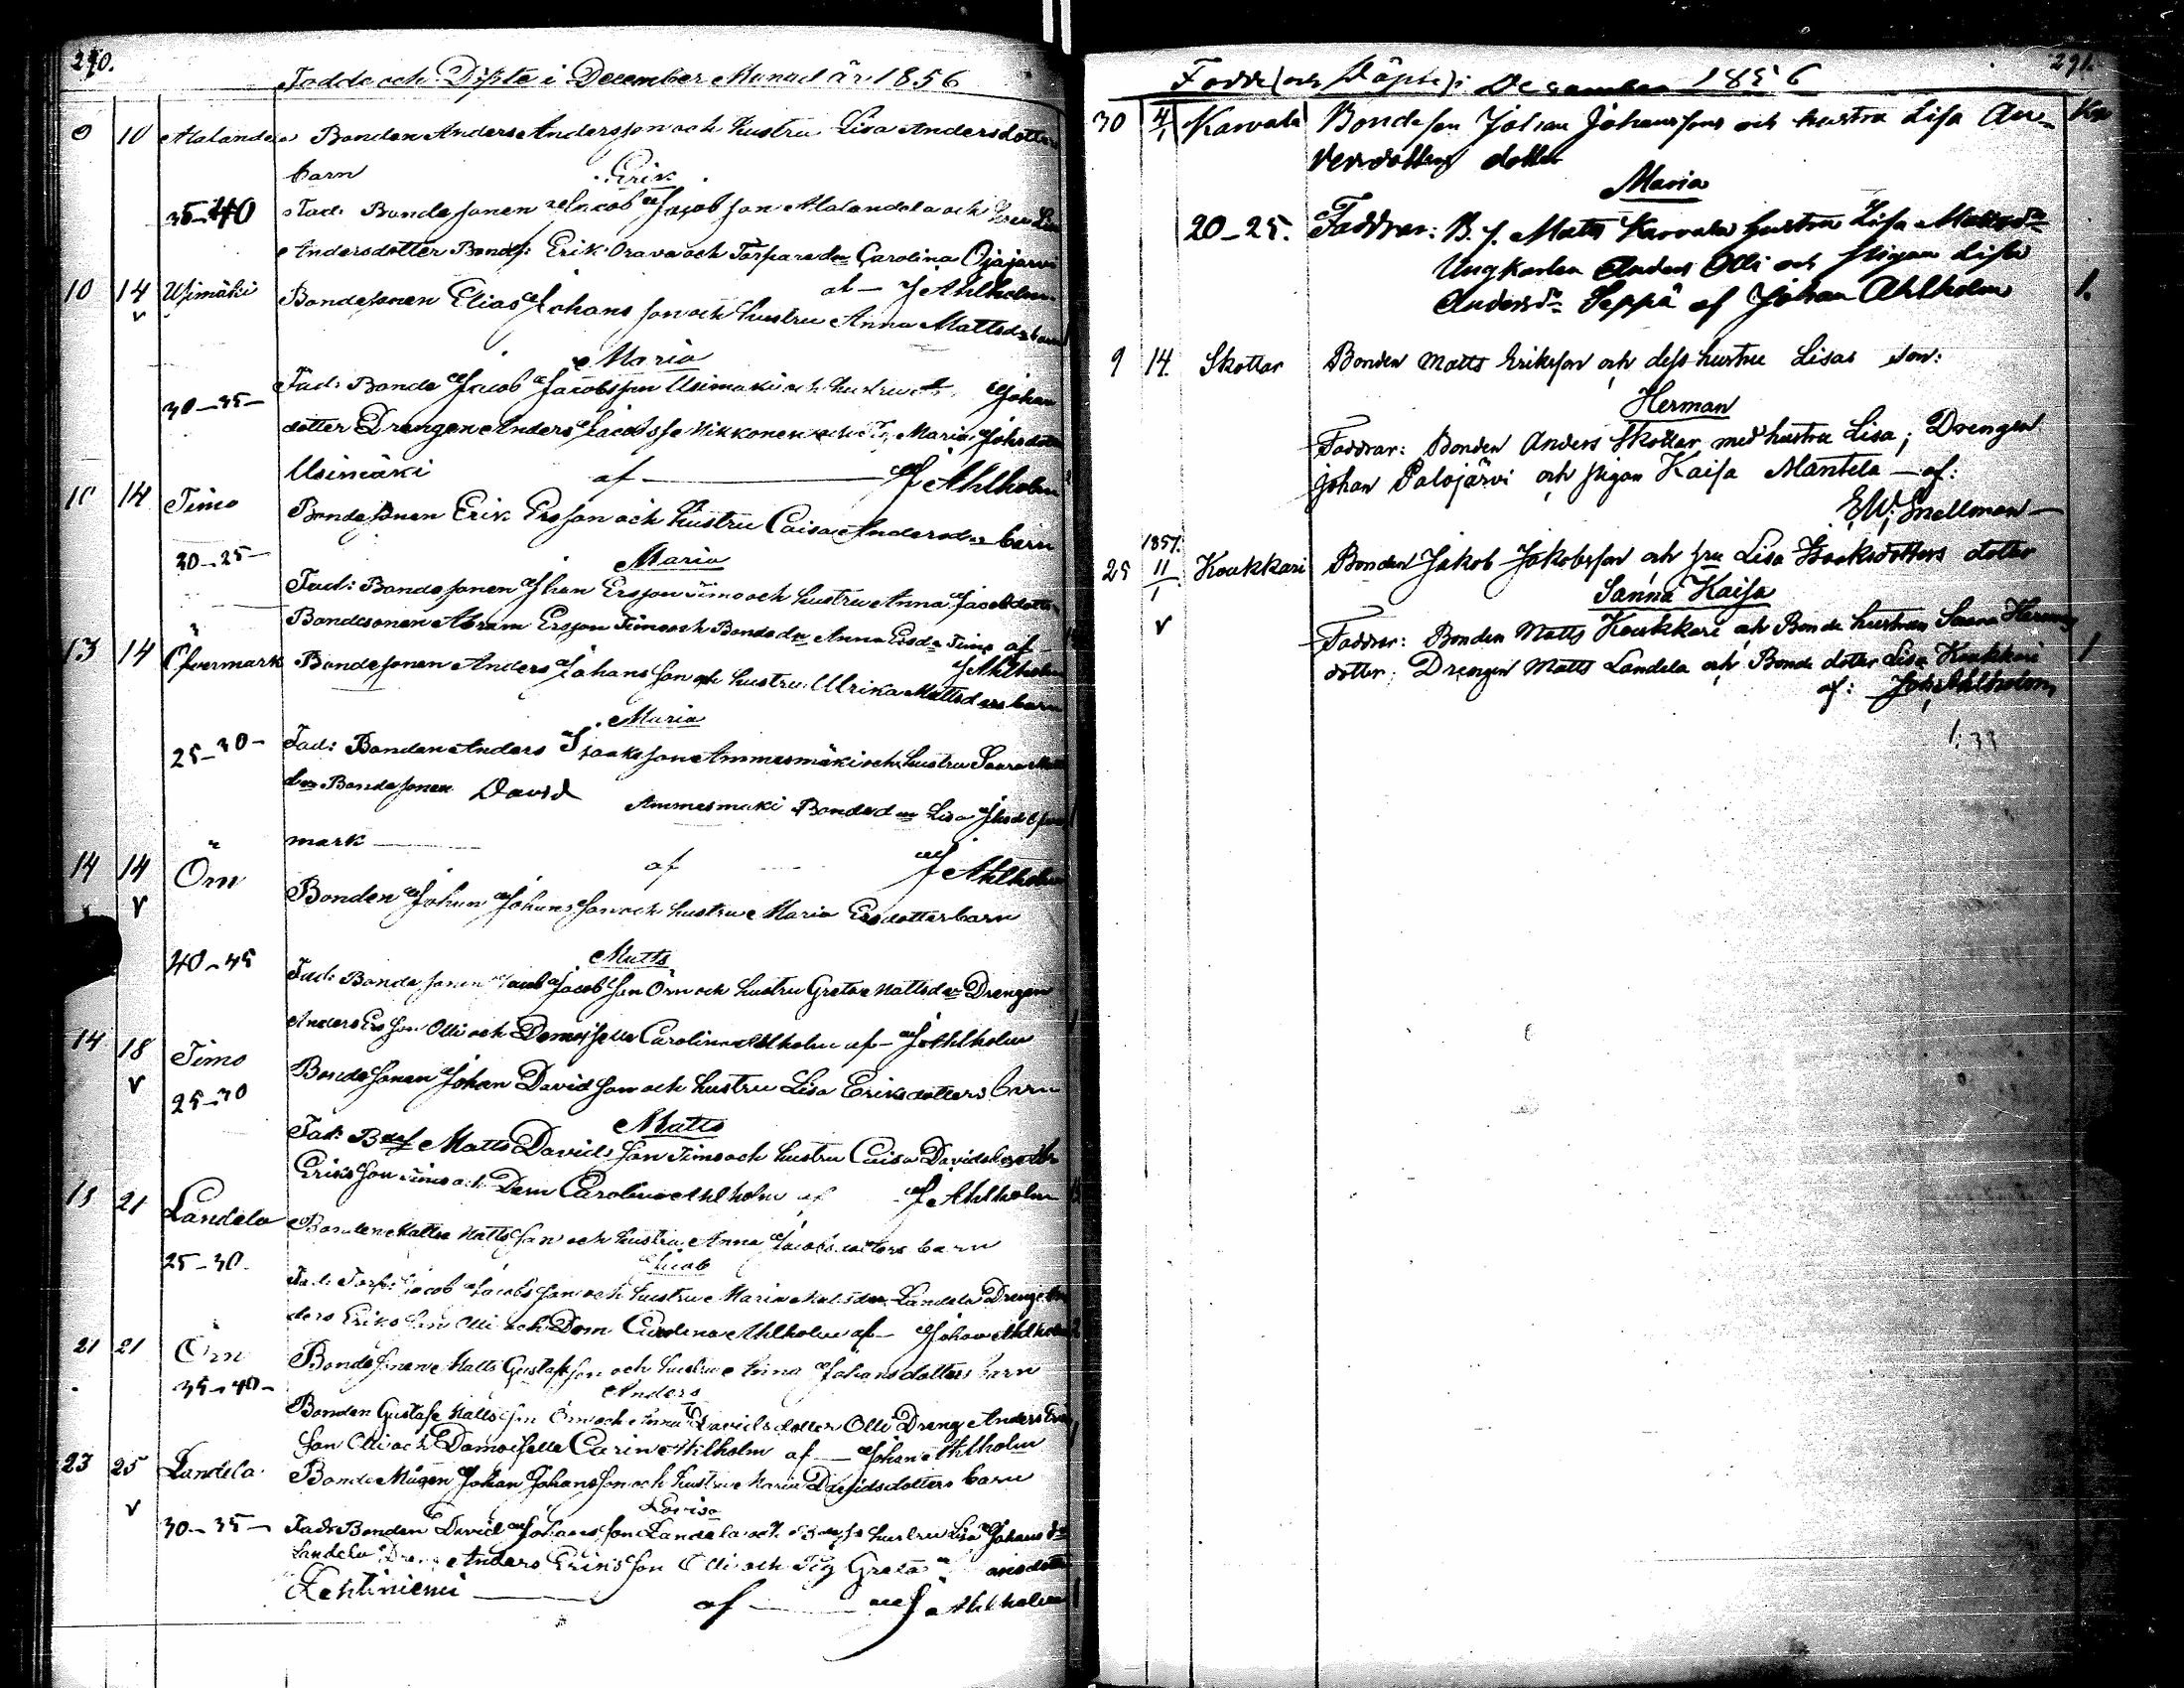 290.
Födde och Döpte i December Månad år 1856
9 10 Alalandela Bonden Anders Andersson och hustru Lisa Andersdotters
barn Erik
35-40 Fad: Bondesonen Jacob Jacobsson Alalandela och
Andersdotter Bonds: Erik Orava och Torparedn Carolina Ojajärvi
af - J Ahlholm
10 14 Usimäki Bondesonen Elias Johansson och hustru Anna Mattsdrs barn
v
Maria
30-35- Fad: Bonde Jacob Jacobsson Usimäki och hustru Johan
dotter Drengen Anders Jacobss Nikkonen och Maria Johsdotter
Usimäki af — J Ahlholm
10 14 Timo Bondesonen Erik Ersson och hustru Caisa Andersdrs barn
20-25- Maria
Fad: Bondesonen Johan Ersson Timo och hustru Anna Jacobdotter
Bondesonen Abram Ersson Timo och Bondedn Anna Ersdr Timo af -
J Ahlholm
13 14 Öfvermark Bondesonen Anders Johansson och hustru Ulrika Mattsdrs barn
Maria
25-30- Fad: Bonden Anders Isaaksson Ammesmäki och hustru Saara
dr Bondesonen David Ammesmäki Bondedn Lisa
mark — af J Ahlholm
14 14 Örn Bonden Johan Johansson och hustru Maria Ersdotters barn
v
40-45 Matts
Fad: Bondesonen Jacob Jacobsson Örn och hustru Greta Mattsdr Drengen
Anders Ersson Olli och Demoiselle Carolina Ahlholm af - J Ahlholm
14 18 Timo Bondesonen Johan Davidsson och hustru Lisa Eriksdotters barn
v 25-30
Matts
Fad: Bdes Matts Davidsson Timo och hustru Caisa Davidsdr
Eriksson Timo och Dem Carolina Ahlholm af J Ahlholm
15 21 Landela Bonden Matts Mattsson och hustru Anna Jacobsdotters barn
25-30. Jacob
Fad: Torp: Jacob Jacobsson och hustru Maria Mattsdr Landela Dreng An
ders Eriksson Olli och Dem Carolina Ahlholm af - Johan Ahlholm
21 21 Örn Bondesonen Matts Gustafsson och hustru Anna Johansdotters barn
35-40- Anders
Bonden Gustaf Mattsson Örn och Anna Davidsdotter Olli Dreng Anders Eriks
son Olli och Demoiselle Carin Ahlholm af — Johan Ahlholm
23 25 Landela Bonde Mågen Johan Johansson och hustru Maria Davidsdotters barn
v Lovisa
30-35- Fad: Bonden David Johansson Landela och hustru Lisa Johansdr
Landela Dreng Anders Eriksson Olli och Pig Greta
Lehtiniemi — af — J Ahlholm
291.
Födde (och Döpte) i December 1856
30 4/1 Karvala Bondeson Johan Johanssons och hustru Lisa An-
dersdotters dotter
Maria
20-25. Faddrar: B. s. Matts Karvala hustru Lisa Mattsdr
Ungkarlen Anders Olli och pigan Lisa
Andersdr Seppä af Johan Ahlholm 1.
9 14. Skottar Bonden Matts Eriksson och dess hustru Lisas son:
Herman
Faddrar: Bonden Anders Skottar med hustru Lisa; Drengen
Johan Palojärvi och pigan Kaisa Mantela — af:
E.W. Snellman —
1857.
25 11/1 Koukkari Bonden Jakob Jakobsson och hru Lisa Isaksdotters dotter
Sanna Kaisa
v Faddrar: Bonden Matts Koukkari och Bonde hustrun Sanna Hermans
dotter; Drengen Matts Landela och Bonde dotter Lisa Koukkari 1
af: Joh Ahlholm
1:33